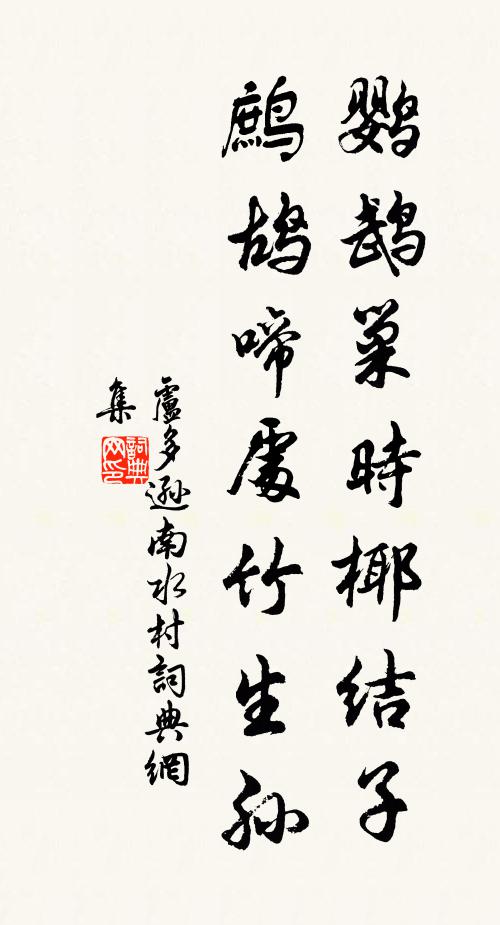 鸚鵡巢時椰結子
鷓鴣啼處竹生孫
盧多遜南水村詞典網
集
詞典
网印